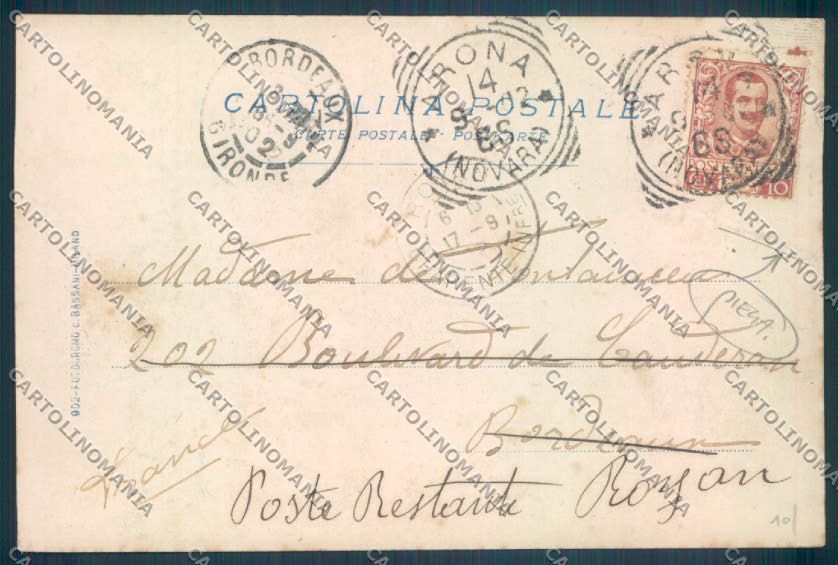 CARTOLINA POSTALE
CARTE POSTALE - POSTKARTE
BORDEAUX
GIRONDE
ARONA
14
(NOVARA)
ARONA
14
(NOVARA)
10
902-FOTOCROMO C. BASSANI-MILANO
Madame de
202 Boulevard de Cauderan
Bordeaux
PIEGA.
Poste Restante Royan
10/
CARTOLINOMANIA